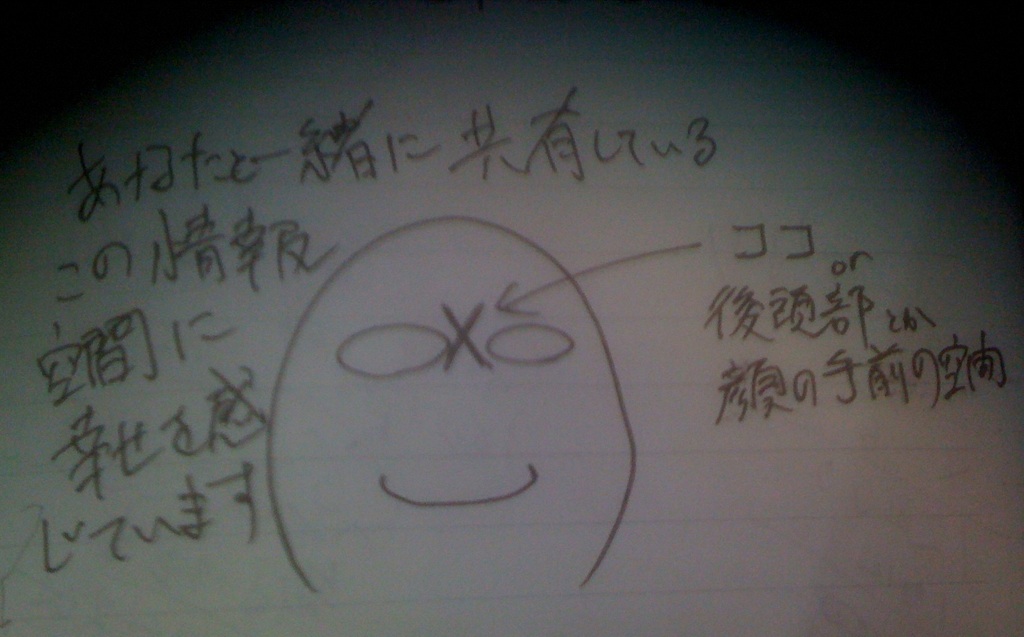 あなたと一緒に共有している
この情報
空間に
幸せを感
じています
ココ
or
後頭部とか
顔の手前の空間